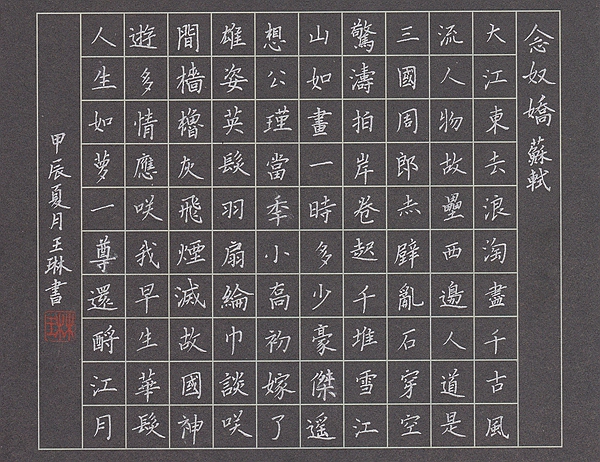 念奴嬌 蘇軾
大江東去浪淘盡千古風
流人物故壘西邊人道是
三國周郎赤壁亂石穿空
驚濤拍岸卷起千堆雪江
山如畫一時多少豪傑遥
想公瑾當秊小喬初嫁了
雄姿英髮羽扇綸巾談咲
間檣櫓灰飛煙滅故國神
遊多情應咲我早生華髮
人生如夢一尊還酹江月
甲辰夏月王琳書